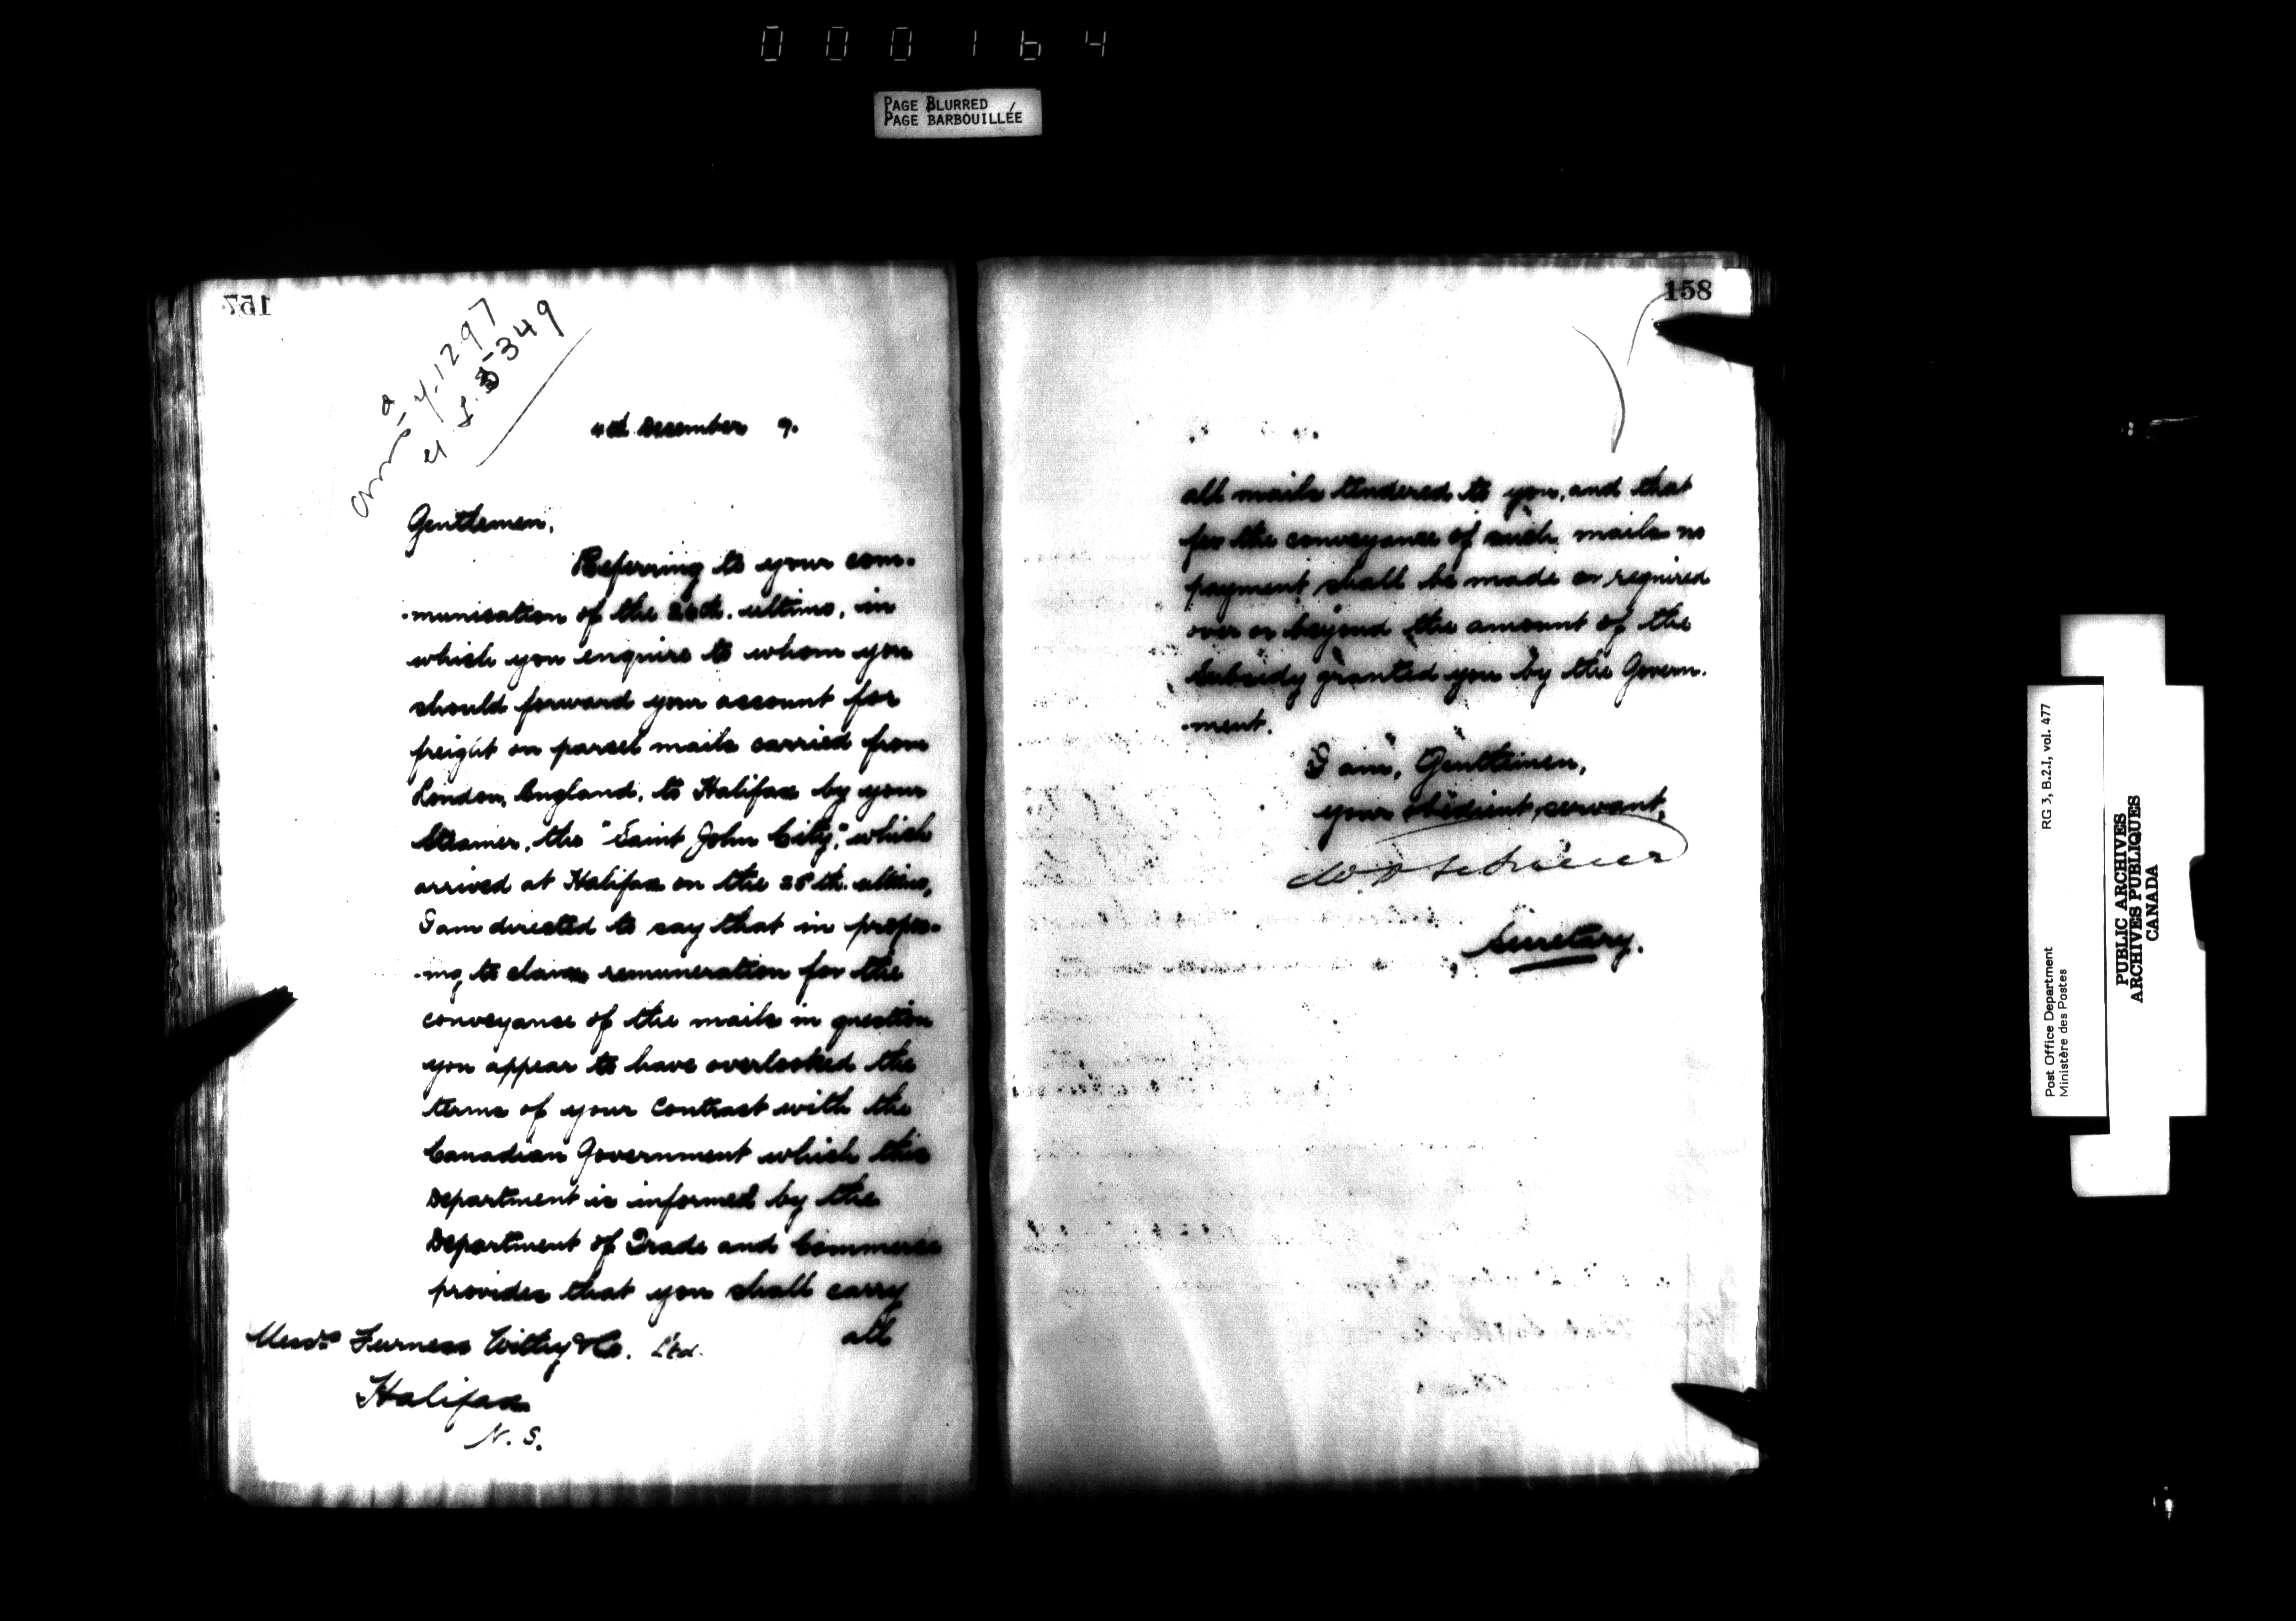 000164
PAGE BLURRED
PAGE BARBOUILLÉE
157
1297
349
4th December 9.
Gentlemen,
Referring to your com-
-munication of the 26th. ultimo, in
which you enquire to whom you
should forward your account for
freight on parcel mails carried from
London, England, to Halifax by your
Steamer, the "Saint John City", which
arrived at Halifax on the 25th. ultimo,
I am directed to say that in propos-
-ing to claim remuneration for the
conveyance of the mails in question
you appear to have overlooked the
terms of your Contract with the
Canadian Government which this
Department is informed by the
Department of Trade and Commerce
provides that you shall carry
all
Messrs Furness Withy & Co. Ltd.
Halifax
N. S.
158
all mails tendered to you, and that
for the conveyance of such mails no
payment shall be made or required
over or beyond the amount of the
Subsidy granted you by the Govern-
-ment.
I am, Gentlemen,
your obedient servant,
Secretary.
Post Office Department
Ministère des Postes
RG 3, B.2.I, vol. 477
PUBLIC ARCHIVES
ARCHIVES PUBLIQUES
CANADA